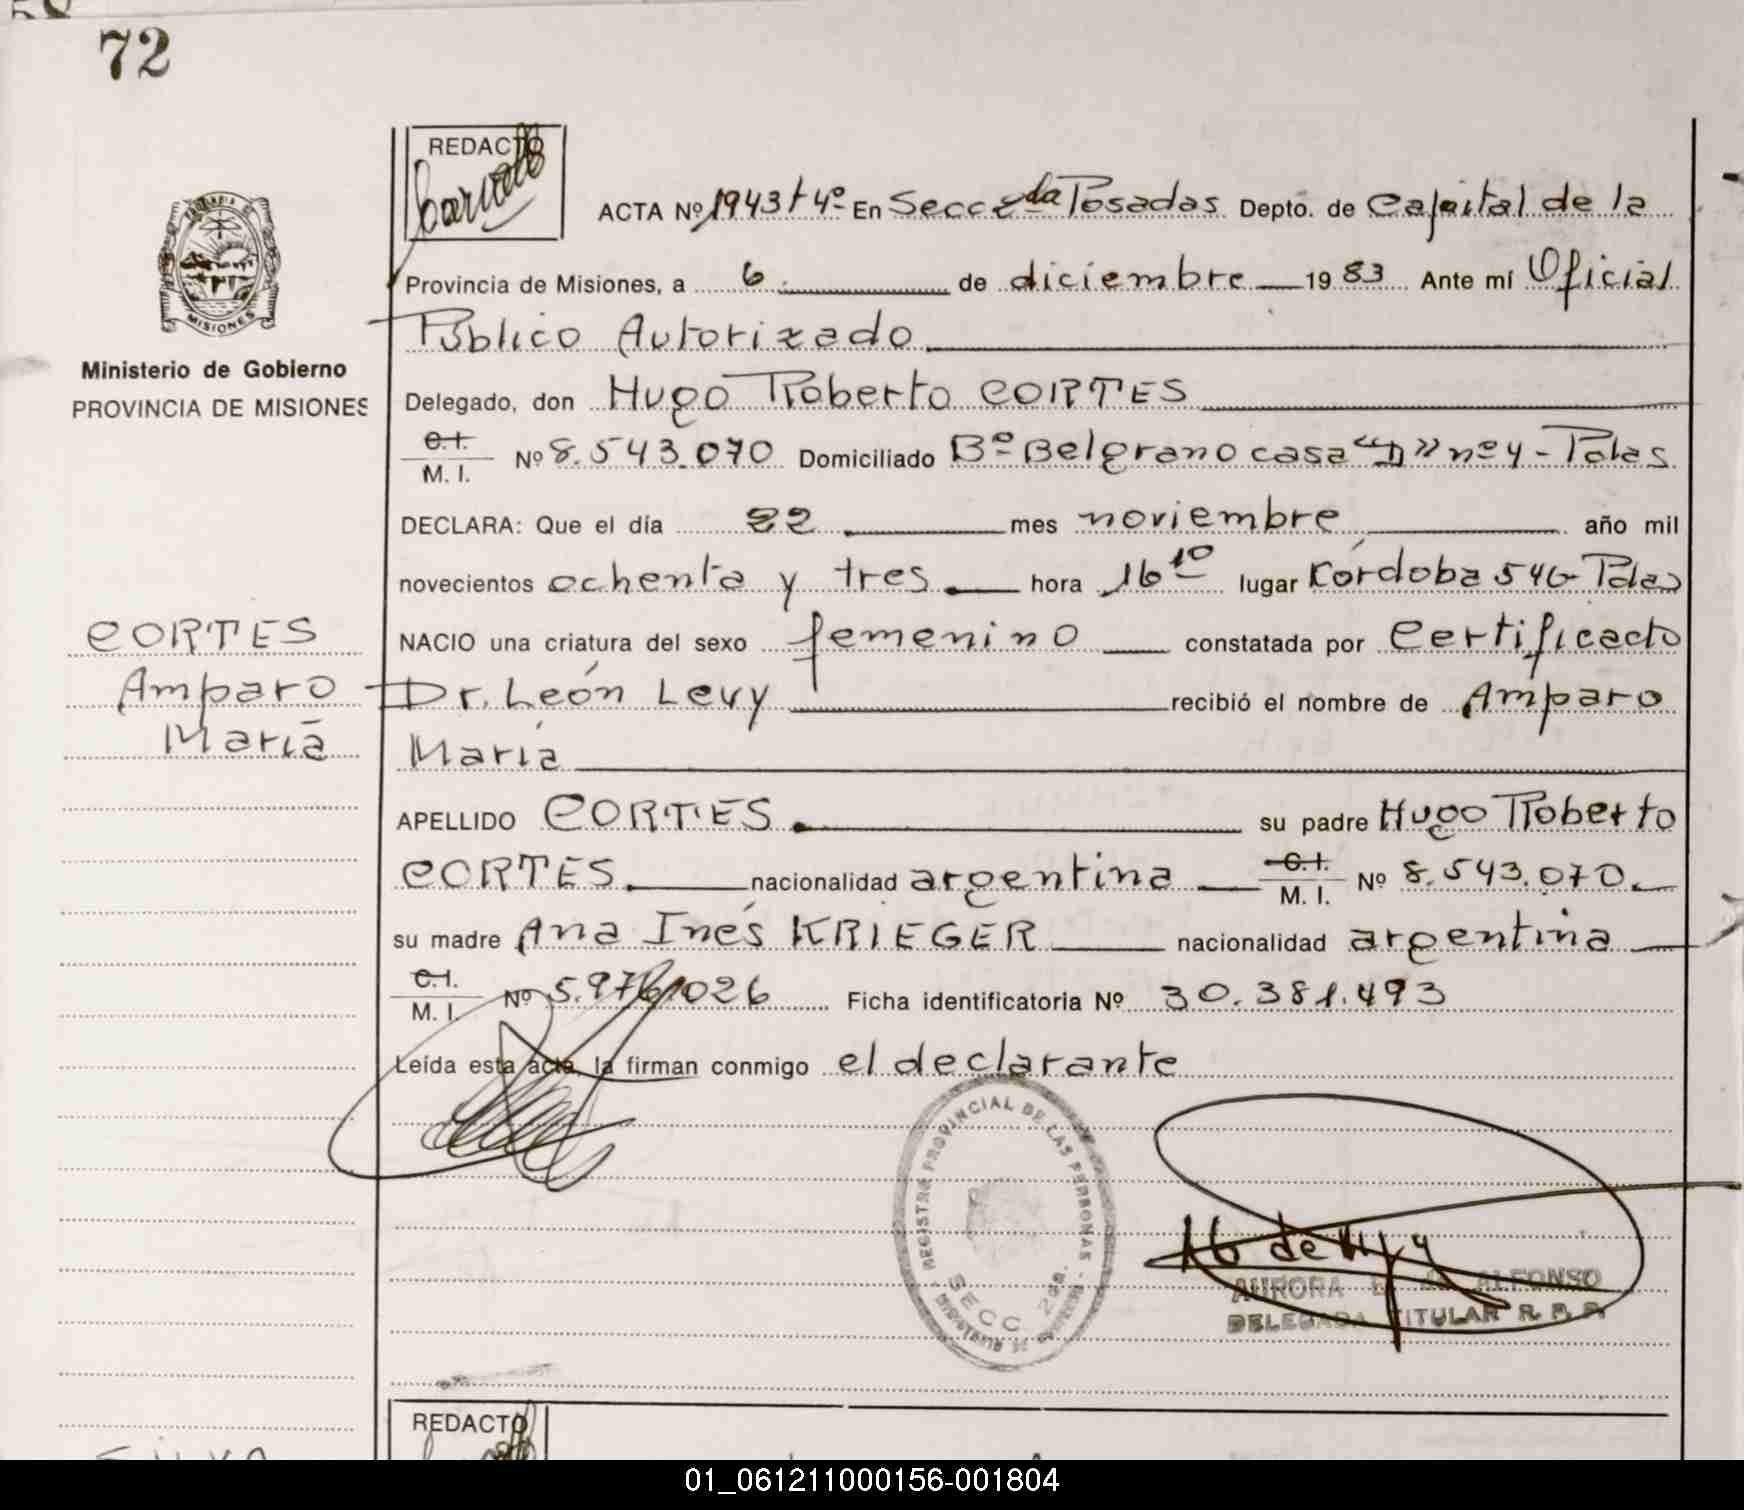 72
REDACTO
ACTA Nº 1943 t 4º En Secc 2da Posadas Depto. de Capital de la
Provincia de Misiones, a 6 de diciembre 1983 Ante mí Oficial
Público Autorizado
MISIONES
Ministerio de Gobierno
PROVINCIA DE MISIONES
Delegado, don Hugo Roberto CORTES
C.I.
M. I. Nº 8.543.070 Domiciliado Bº Belgrano casa "D" nº 4 - Pdas
DECLARA: Que el día 22 mes noviembre año mil
novecientos ochenta y tres hora 16 10 lugar Córdoba 546 Pdas
CORTES
Amparo
María
NACIO una criatura del sexo femenino constatada por Certificado
Dr. León Levy recibió el nombre de Amparo
María
APELLIDO CORTES su padre Hugo Roberto
CORTES nacionalidad argentina C.I. M. I. Nº 8.543.070
su madre Ana Inés KRIEGER nacionalidad argentina
C.I.
M. I. Nº 5.976.026 Ficha identificatoria Nº 30.381.493
Leída esta acta, la firman conmigo el declarante
REGISTRO PROVINCIAL DE LAS PERSONAS
SECC 2da.
AURORA ALFONSO
DELEGADA TITULAR R. P. P.
REDACTO
01_061211000156-001804